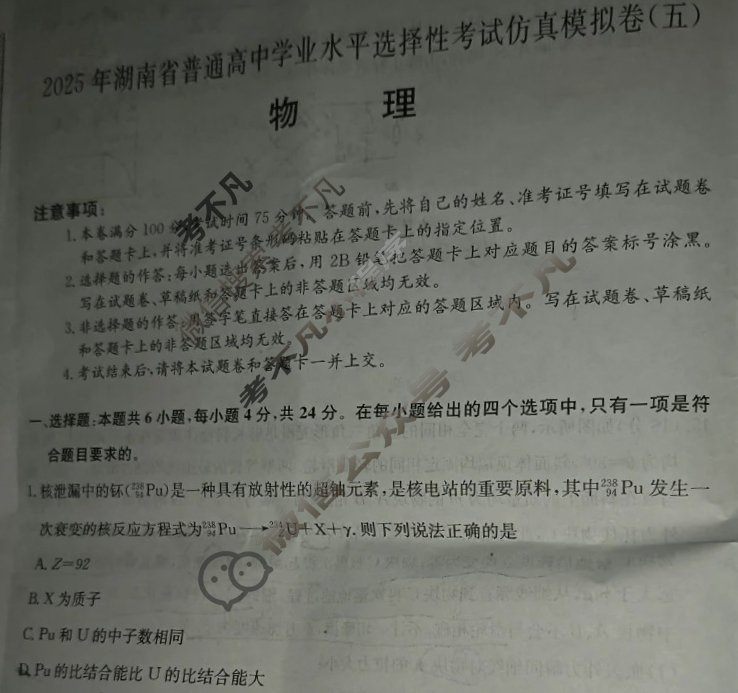 2025年湖南省普通高中学业水平选择性考试仿真模拟卷(五)
物 理
注意事项:
1.本卷满分100分,考试时间75分钟。答题前,先将自己的姓名、准考证号填写在试题卷
和答题卡上,并将准考证号条形码粘贴在答题卡上的指定位置。
2.选择题的作答:每小题选出答案后,用2B铅笔把答题卡上对应题目的答案标号涂黑。
写在试题卷、草稿纸和答题卡上的非答题区域均无效。
3.非选择题的作答:用签字笔直接答在答题卡上对应的答题区域内。写在试题卷、草稿纸
和答题卡上的非答题区域均无效。
4.考试结束后,请将本试题卷和答题卡一并上交。
一、选择题:本题共6小题,每小题4分,共24分。在每小题给出的四个选项中,只有一项是符
合题目要求的。
1.核泄漏中的钚(²³⁸₉₄Pu)是一种具有放射性的超铀元素,是核电站的重要原料,其中²³⁸₉₄Pu发生一
次衰变的核反应方程式为²³⁸₉₄Pu→U+X+γ.则下列说法正确的是
A.Z=92
B.X为质子
C.Pu和U的中子数相同
D.Pu的比结合能比U的比结合能大
考不凡
考不凡
微信公众号 考不凡